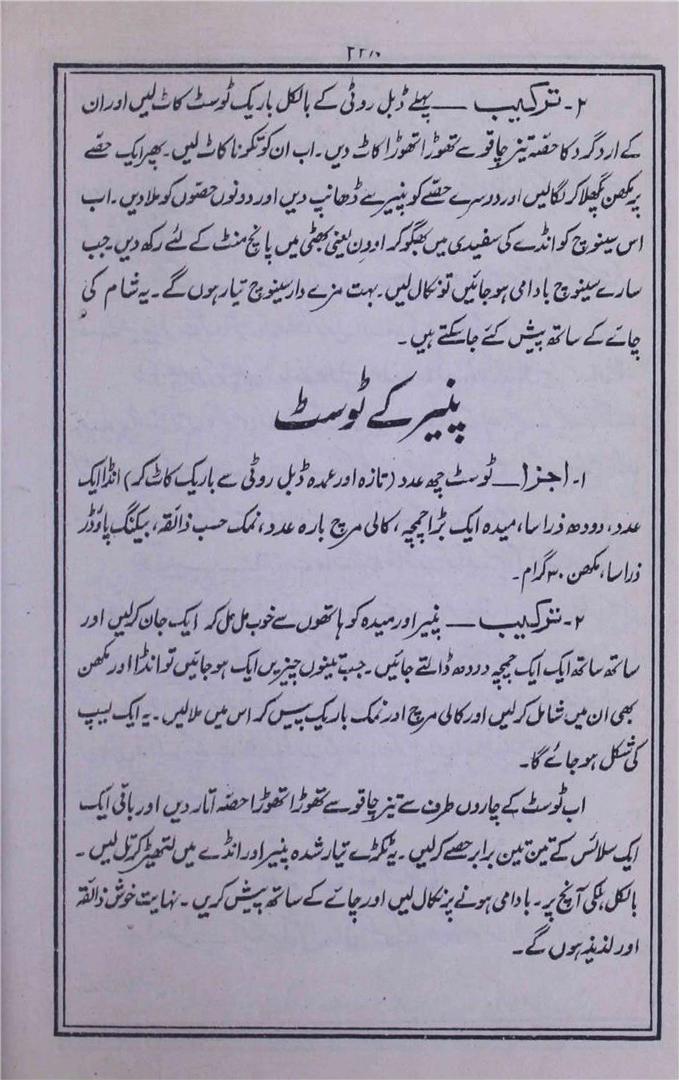 ۲۔ ترکیب — پہلے ڈبل روٹی کے بالکل باریک ٹوسٹ کاٹ لیں اور ان
کے ارد گرد کا حصّہ تیز چاقو سے تھوڑا تھوڑا کاٹ دیں۔ اب ان کو تکونا کاٹ لیں۔ پھر ایک حصّے
پر مکھن پگھلا کر لگا لیں اور دوسرے حصّے کو پنیر سے ڈھانپ دیں اور دونوں حصّوں کو ملا دیں۔ اب
اس سینوچ کو انڈے کی سفیدی میں بھگو کر اوون یعنی بھٹی میں پانچ منٹ کے لئے رکھ دیں۔ جب
سارے سینوچ بادامی ہو جائیں تو نکال لیں۔ بہت مزے دار سینوچ تیار ہوں گے۔ یہ شام کی
چائے کے ساتھ پیش کئے جا سکتے ہیں۔
پنیر کے ٹوسٹ
۱۔ اجزا — ٹوسٹ چھ عدد (تازہ اور عمدہ ڈبل روٹی سے باریک کاٹ کر) انڈا ایک
عدد، دودھ ذرا سا، میدہ ایک بڑا چمچہ، کالی مرچ بارہ عدد، نمک حسب ذائقہ، بیکنگ پاؤڈر
ذرا سا، مکھن ۳۰ گرام۔
۲۔ ترکیب — پنیر اور میدہ کو ہاتھوں سے خوب مل مل کر ایک جان کر لیں اور
ساتھ ساتھ ایک ایک چمچہ دودھ ڈالتے جائیں۔ جب تینوں چیزیں ایک ہو جائیں تو انڈا اور مکھن
بھی ان میں شامل کر لیں اور کالی مرچ اور نمک باریک پیس کر اس میں ملا لیں۔ یہ ایک لیپ
کی شکل ہو جائے گا۔
اب ٹوسٹ کے چاروں طرف سے تیز چاقو سے تھوڑا تھوڑا حصّہ اتار دیں اور باقی ایک
ایک سلائس کے تین تین برابر حصے کر لیں۔ یہ ٹکڑے تیار شدہ پنیر اور انڈے میں لتھیڑ کر تل لیں۔
بالکل ہلکی آنچ پر۔ بادامی ہونے پر نکال لیں اور چائے کے ساتھ پیش کریں۔ نہایت خوش ذائقہ
اور لذیذ ہوں گے۔